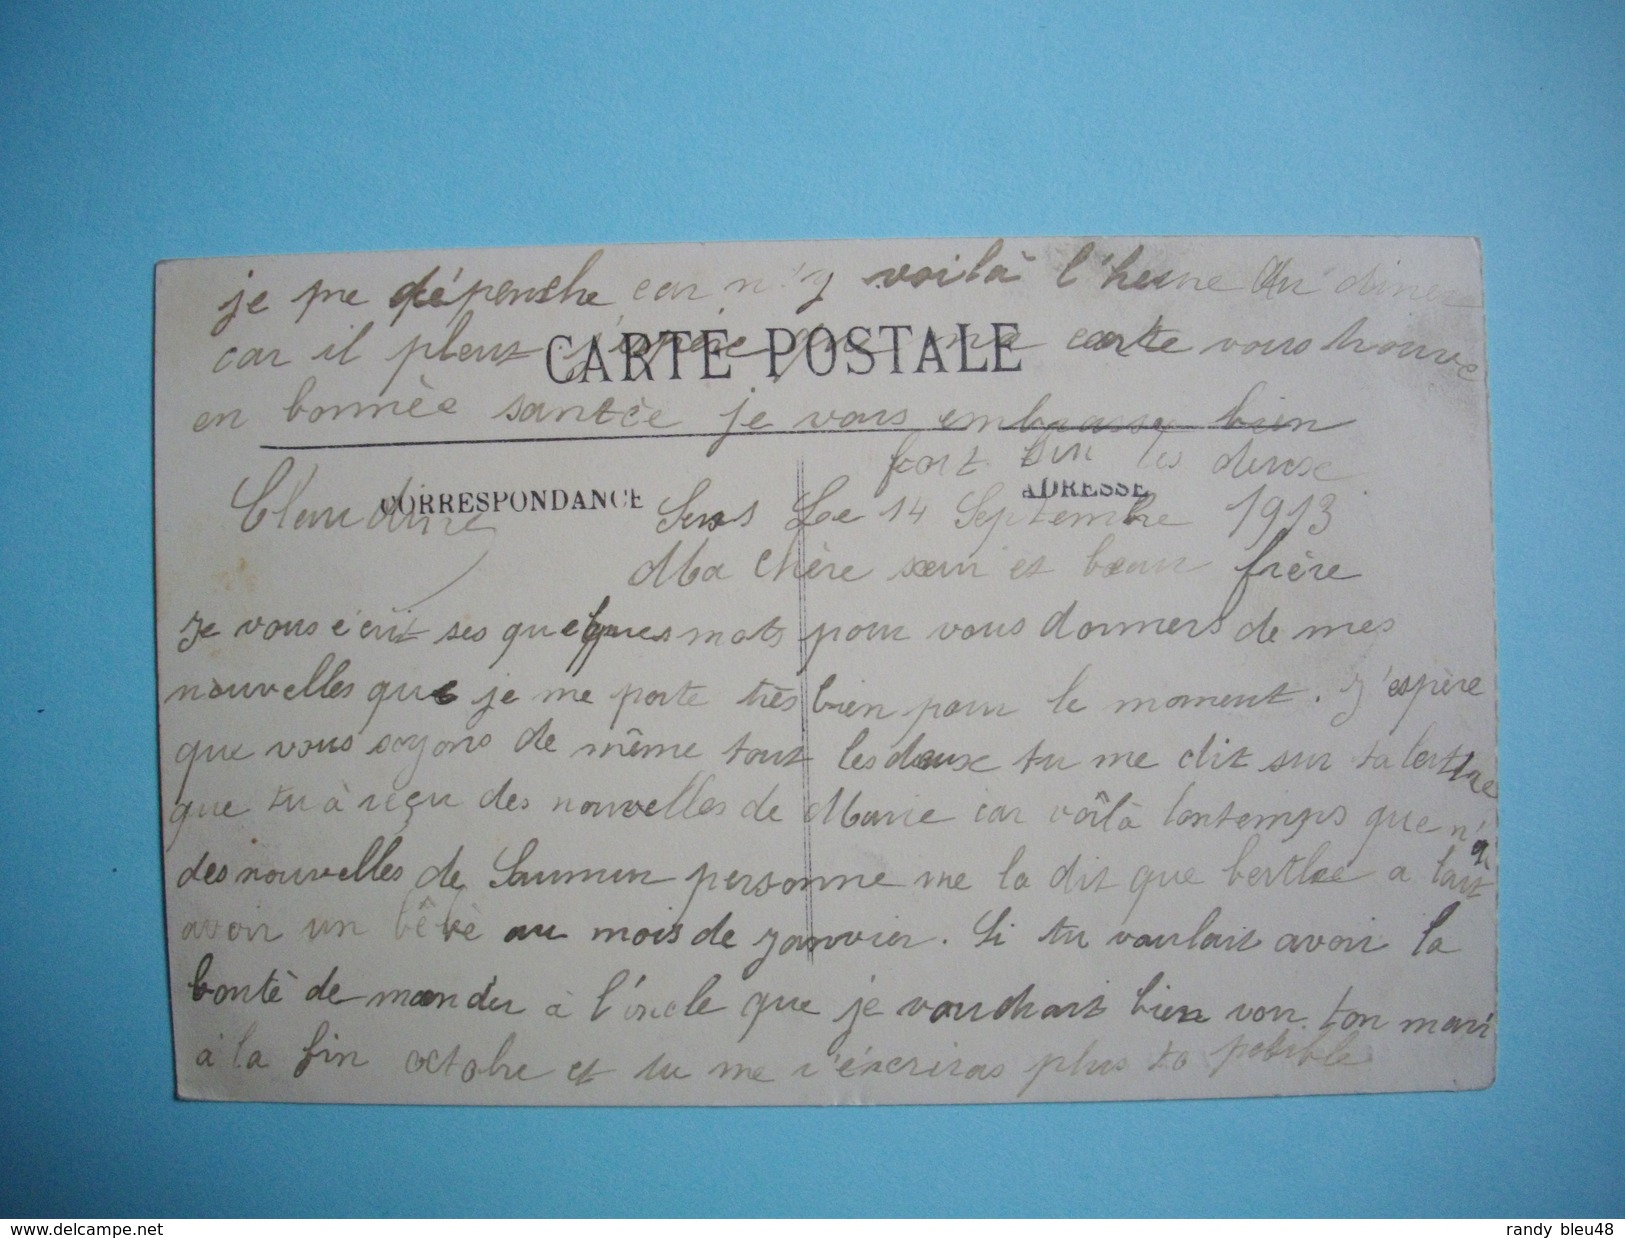 je me dépenche car voilà l'heure du diner
car il pleut j'espère que ma carte vous trouve
CARTE POSTALE
en bonnèe santèe je vous embrasse bien
fort tous les deux
Claudine
CORRESPONDANCE
ADRESSE
Sens Le 14 Septembre 1913
Ma chère sœur et beaur frère
Je vous écrit ses quelques mots pour vous donners de mes
nouvelles que je me porte très bien pour le moment. J'espère
que vous soyons de même tout les deux tu me dit sur ta lettre
que tu à reçu des nouvelles de Marie car voilà lontemps que n'ai
des nouvelles de Saumur personne me la dit que berthe a lait
avoir un bêbè au mois de janvier. Si tu voulait avoir la
bontè de mander à l'oncle que je voudrait bien voir ton mari
à la fin octobre et tu me r'écriras plus to posible
www.delcampe.net
randy_bleu48